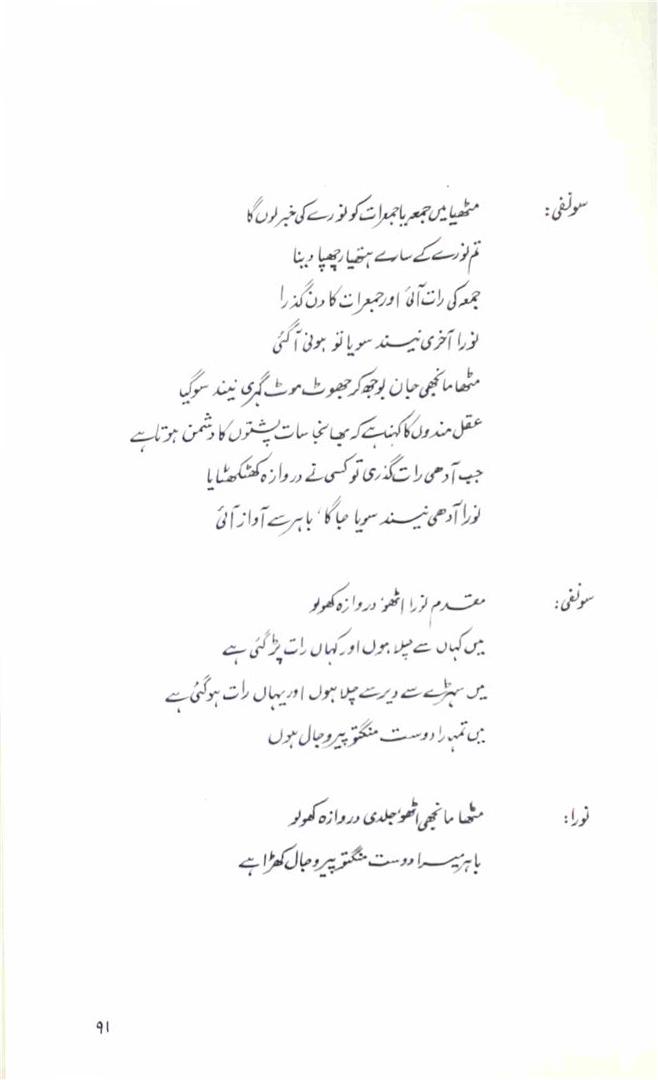 سونفی: مٹھیا میں جمعہ یا جمعرات کو نورے کی خبر لوں گا
تم نورے کے سارے ہتھیار چھپا دینا
جمعہ کی رات آئی اور جمعرات کا دن گذرا
نورا آخری نیند سویا تو ہونی آگئی
مٹھا مانجھی جان بوجھ کر جھوٹ موٹ گہری نیند سوگیا
عقل مندوں کا کہنا ہے کہ بھانجا سات پشتوں کا دشمن ہوتا ہے
جب آدھی رات گذری تو کسی نے دروازہ کھٹکھٹایا
نورا آدھی نیند سویا جاگا، باہر سے آواز آئی
سونفی: مقدم نورا اٹھو دروازہ کھولو
میں کہاں سے چلا ہوں اور کہاں رات پڑ گئی ہے
میں سہڑے سے دیر سے چلا ہوں اور یہاں رات ہوگئی ہے
میں تمہارا دوست منگتو پیرو جال ہوں
نورا: مٹھا مانجھی اٹھو جلدی دروازہ کھولو
باہر میرا دوست منگتو پیرو جال کھڑا ہے
۹۱